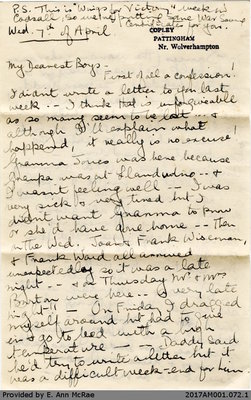 P.S. This is "Wings for Victory" week in
Codsall so we've bought some War Saving
Certificates for you.
Wed. 7th of April
COPLEY
PATTINGHAM
Nr. Wolverhampton
My Dearest Boys -
First of all a confession!
I didn't write a letter to you last
week -- I think that is unforgiveable
as so many seem to be lost -- &
although I'll explain what
happened, it really is no excuse!
Gramma Jones was here because
Grampa was at Llandudno -- &
I wasn't feeling well -- I was
very sick & very tired but I
didn't want Gramma to know
or she'd have gone home -- Then
on the Wed. Joan & Frank Wiseman
& Frank Ward all arrived
unexpectedly so it was a late
night -- & on Thursday Mr & Mrs
Burton were here -- a very late
night! -- On Friday I dragged
myself around but had to give
in & go to bed with a high
temperature -- Daddy said
he'd try to write a letter but it
was a difficult week-end for him
Provided By: E. Ann McRae
2017AM001.072.1